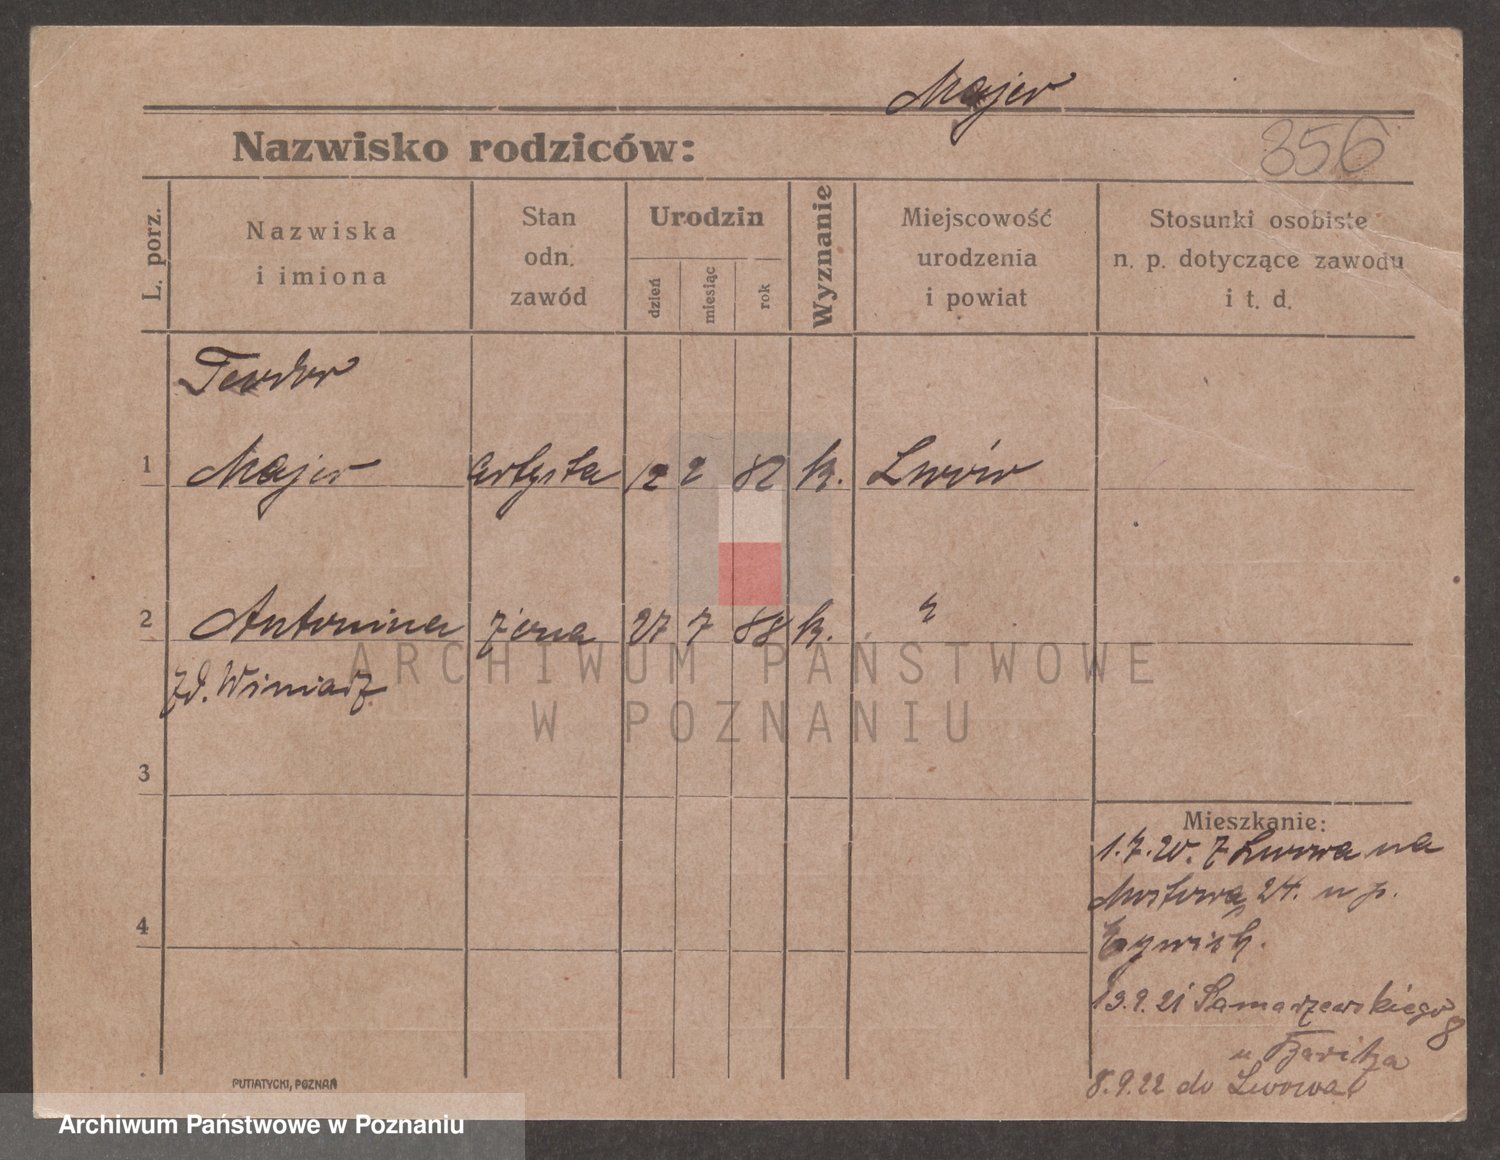 Majer
Nazwisko rodziców:
356
L. porz.
Nazwiska
i imiona
Stan
odn.
zawód
Urodzin
dzień
miesiąc
rok
Wyznanie
Miejscowość
urodzenia
i powiat
Stosunki osobiste
n. p. dotyczące zawodu
i t. d.
Teodor
1 Majer artysta 12 2 82 k. Lwów
2 Antonina żona 27 7 88 k. "
zd. Winiarz
ARCHIWUM PAŃSTWOWE
W POZNANIU
3
Mieszkanie:
1.7.20. z Lwowa na
Mostowa 24. u p.
4
13.9.21 Samarzewskiego 8
u
8.9.22 do Lwowa
PUTIATYCKI, POZNAŃ
Archiwum Państwowe w Poznaniu